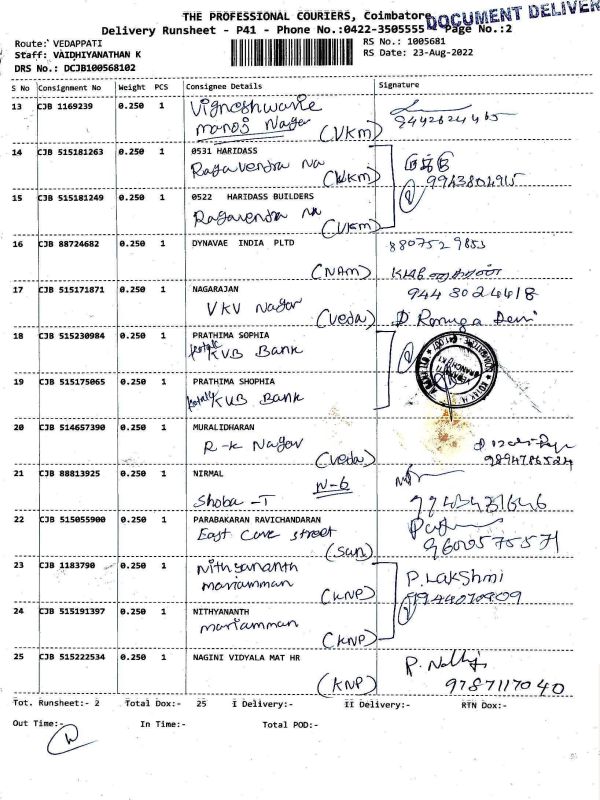 THE PROFESSIONAL COURIERS, Coimbatore
DOCUMENT DELIVER
Delivery Runsheet - P41 - Phone No.:0422-3505555 Page No.:2
Route: VEDAPPATI
RS No.: 1005681
Staff: VAIDHIYANATHAN K
RS Date: 23-Aug-2022
DRS No.: DCJB100568102
S No Consignment No Weight PCS Consignee Details Signature
13 CJB 1169239 0.250 1 Vigneshwarie
manoj Nagar
(VKm)
14 CJB 515181263 0.250 1 0531 HARIDASS
Ragavendra Na
(VKm)
9943804915
15 CJB 515181249 0.250 1 0522 HARIDASS BUILDERS
Ragavendra Na
(VKm)
16 CJB 88724682 0.250 1 DYNAVAE INDIA PLTD
(NAM)
17 CJB 515171871 0.250 1 NAGARAJAN
9443024418
VKV Nagar
(Veda) D Renuga Devi
18 CJB 515230984 0.250 1 PRATHIMA SOPHIA
KVB Bank
19 CJB 515175065 0.250 1 PRATHIMA SHOPHIA
KVB Bank
20 CJB 514657390 0.250 1 MURALIDHARAN
R-K Nagar
(Veda)
9894786524
21 CJB 88813925 0.250 1 NIRMAL
N-6
Shoba -T
22 CJB 515055900 0.250 1 PARABAKARAN RAVICHANDRAN
East Cave street
(San)
9600575571
23 CJB 1183790 0.250 1 Nithyananth
mariamman
(KNP)
P. Lakshmi
9944070909
24 CJB 515191397 0.250 1 NITHYANANTH
mariamman
(KNP)
25 CJB 515222534 0.250 1 NAGINI VIDYALA MAT HR
(KNP)
9787117040
Tot. Runsheet:- 2 Total Dox:- 25 I Delivery:- II Delivery:- RTN Dox:-
Out Time:- In Time:- Total POD:-